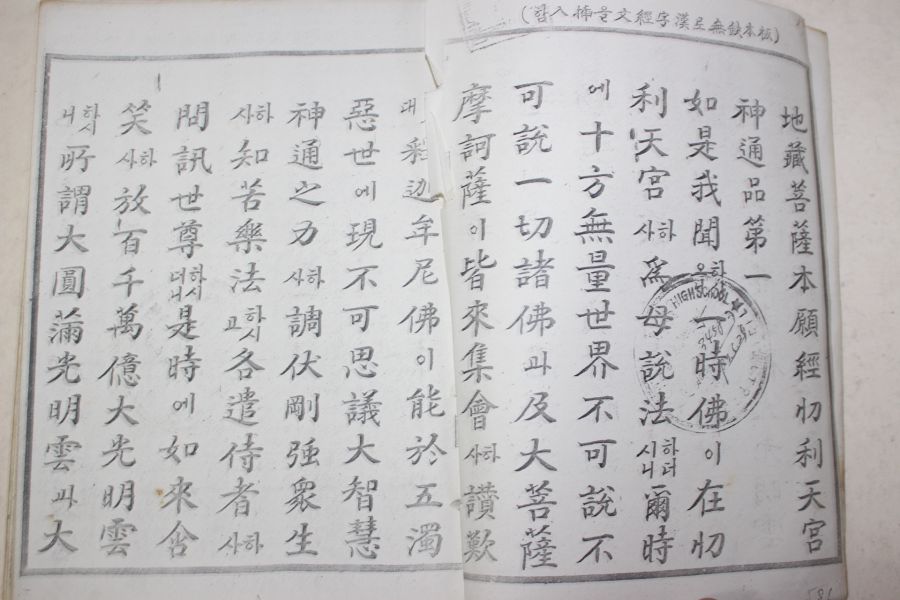 (板本缺無로漢字經文을挿入함)
地藏菩薩本願經忉利天宮
神通品第一
如是我聞하오니一時佛이在忉
利天宮하사爲母說法하더시니爾時
에十方無量世界不可說不
可說一切諸佛과及大菩薩
摩訶薩이皆來集會하사讚歎
대釋迦牟尼佛이能於五濁
惡世에現不可思議大智慧
神通之力하사調伏剛强衆生
하사知苦樂法하시고各遣侍者하사
問訊世尊하시더니是時에如來含
笑하사放百千萬億大光明雲
하시니所謂大圓滿光明雲과大
HIGH SCHOOL